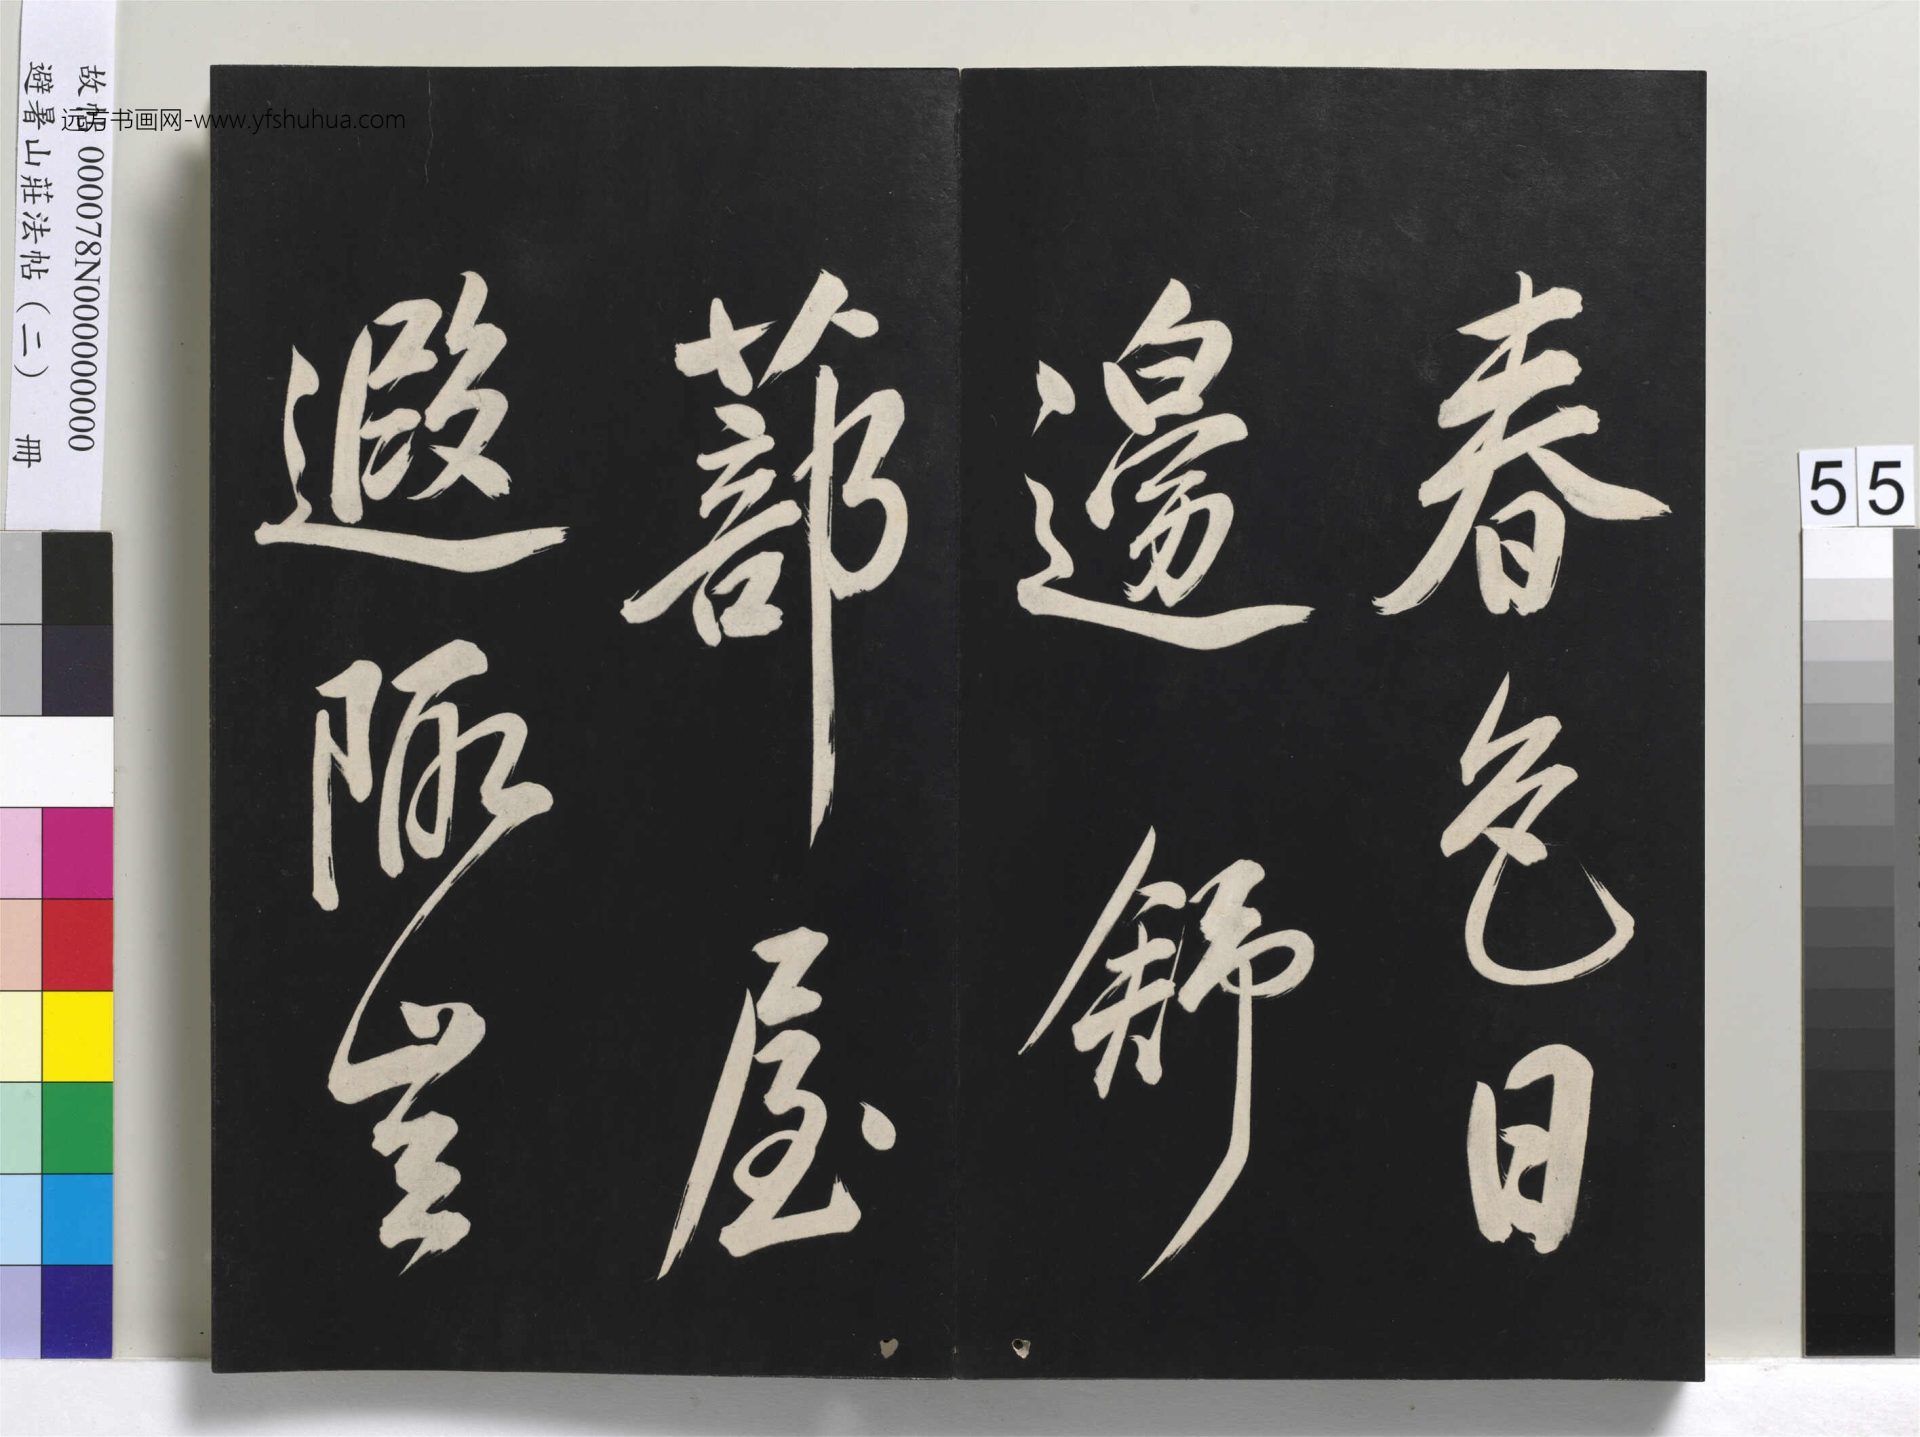 春色日
邊舒
蔀屋
遐陬豈
故帖 000078N000000000
避暑山莊法帖(二) 冊
远方书画网-www.yfshuhua.com
55